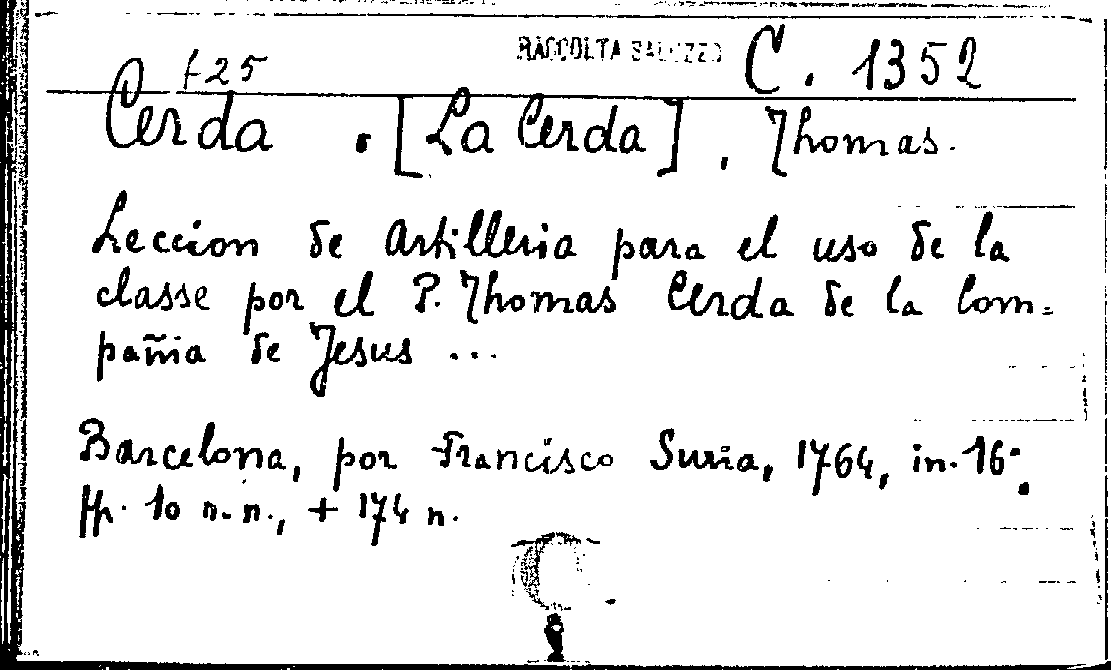 f 25 RACCOLTA SALUZZO C. 1352
Cerda . [La Cerda], Thomas.
Leccion de Artilleria para el uso de la
classe por el P. Thomas Cerda de la Com=
pañia de Jesus ...
Barcelona, por Francisco Suria, 1764, in-16°.
pp. 10 n.n., + 174 n.